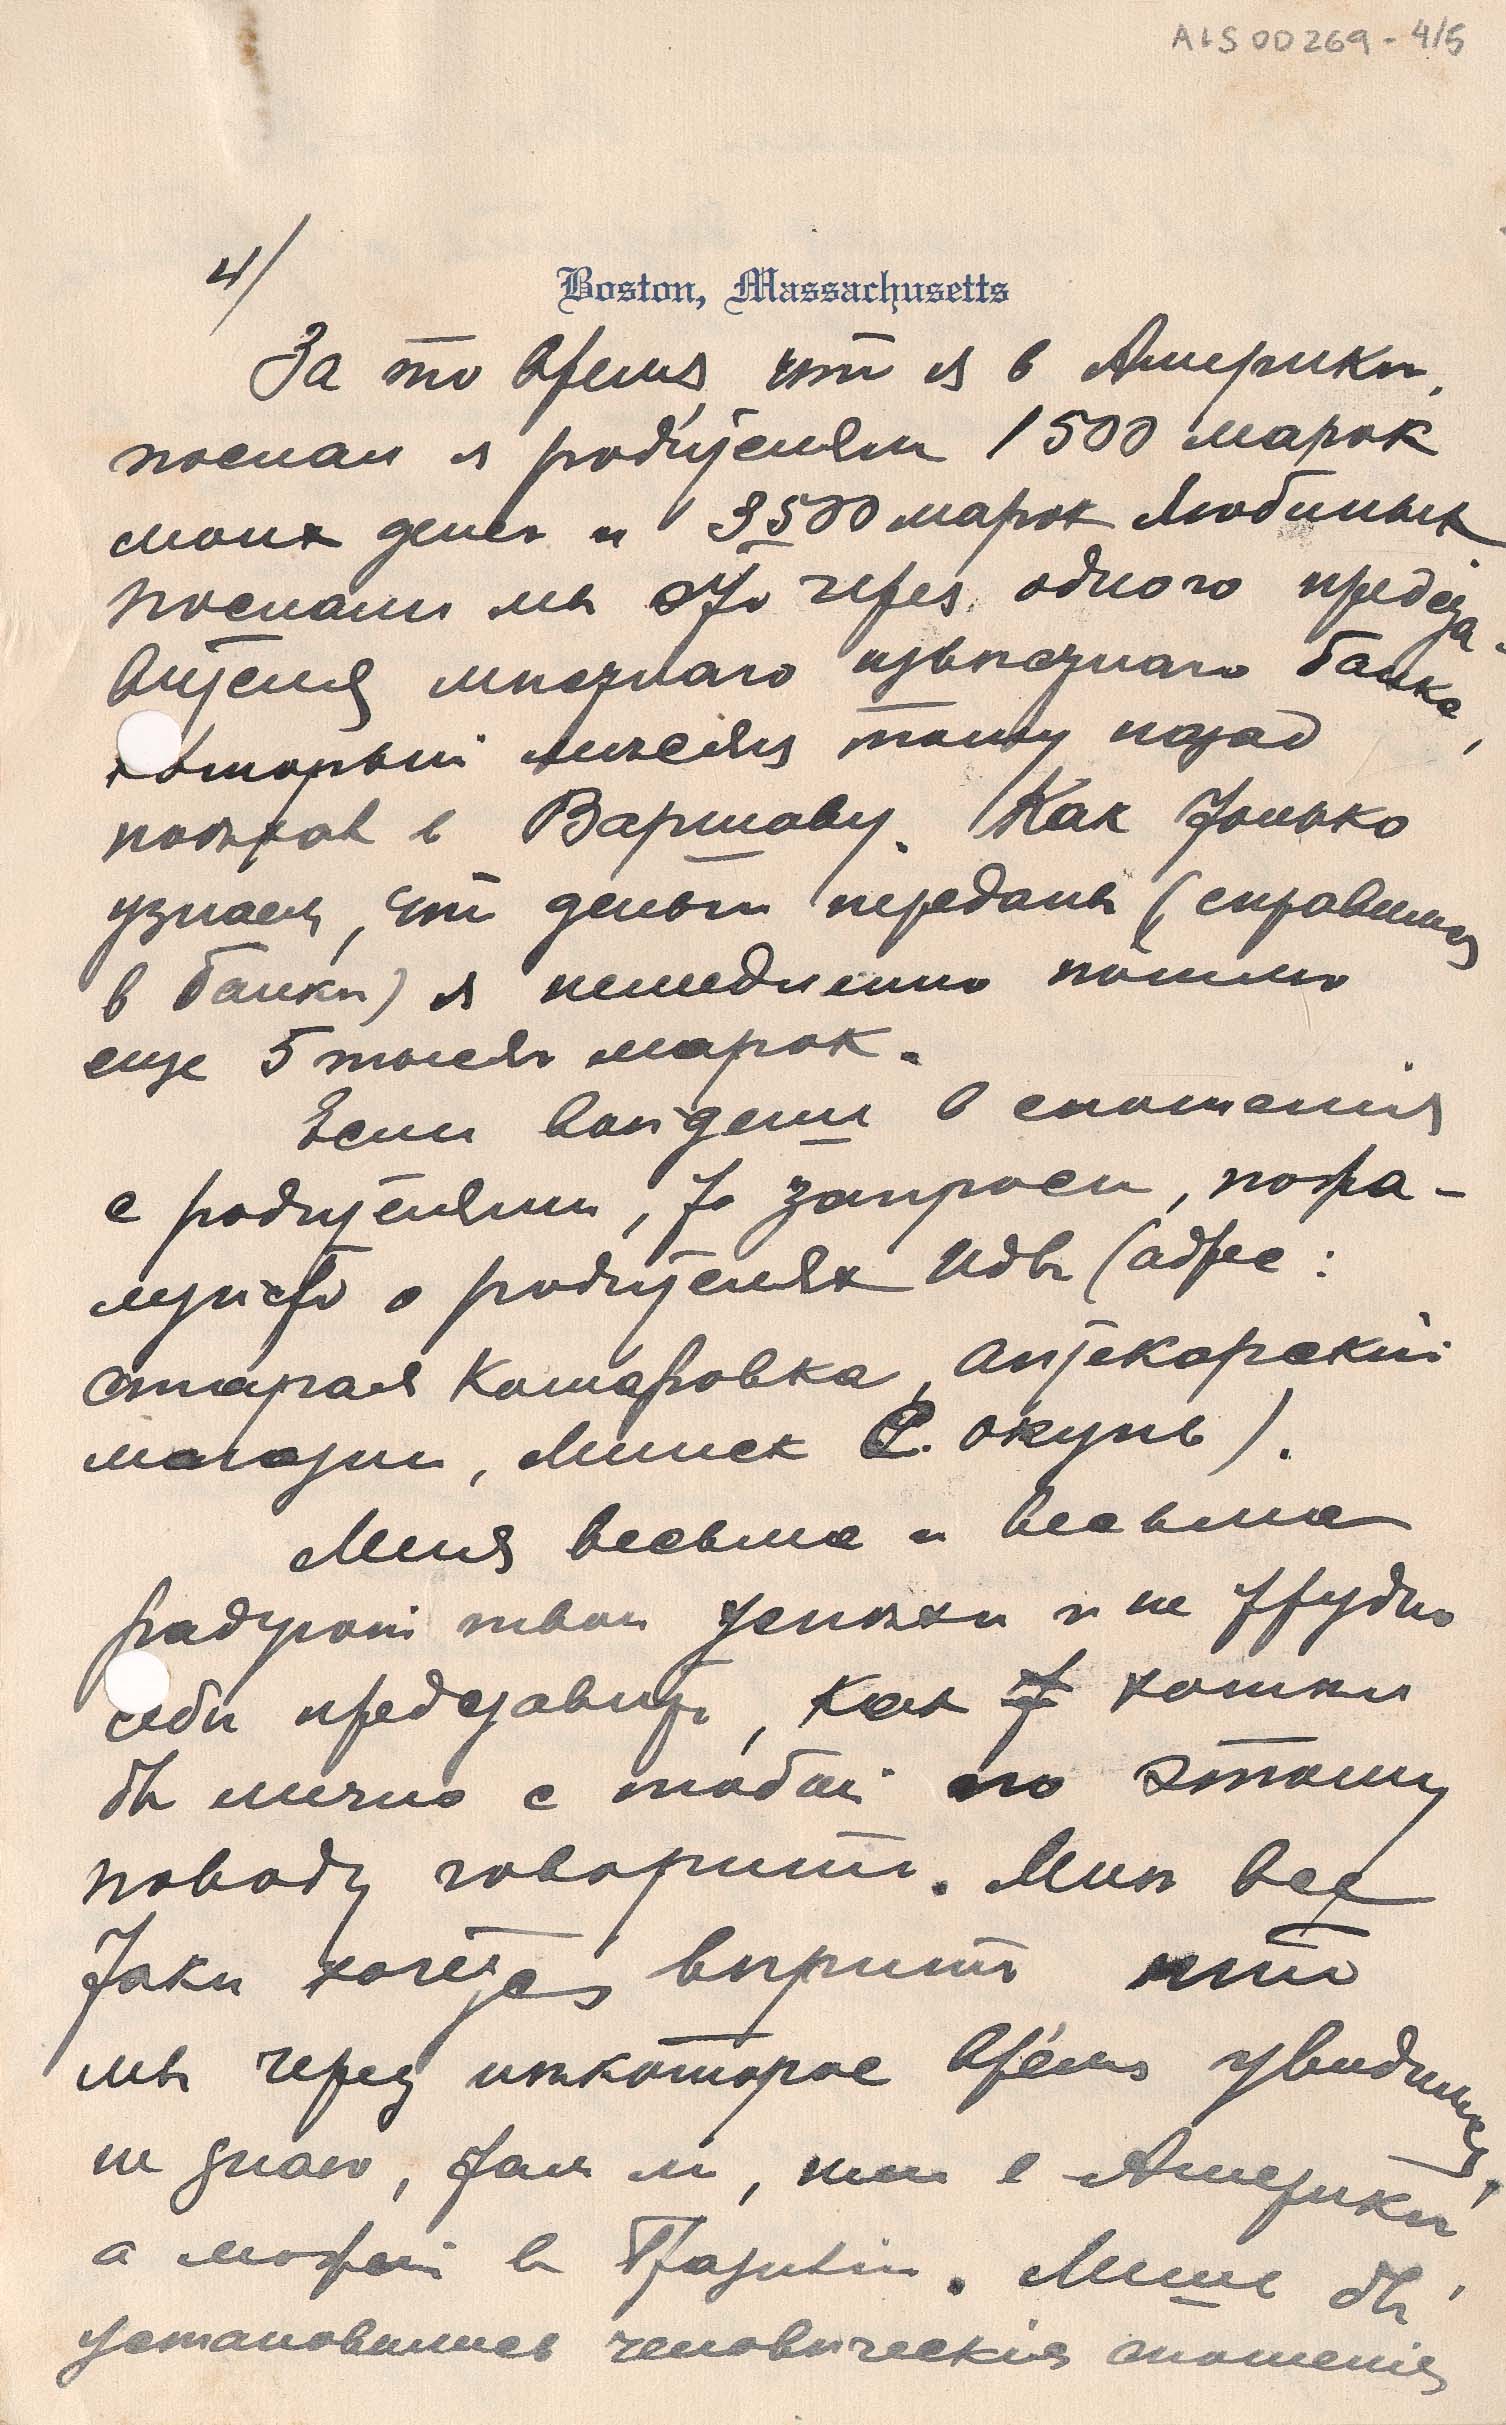 AIS 00269 - 4/5
4/
Boston, Massachusetts
За то время, что я в Америкѣ,
послал я родителям 1500 марок
моих денег и 3500 марок Любиных
послали мы это через одного предста-
вителя мѣстнаго извѣстнаго банка,
который мѣсяц тому назад
поѣхал в Варшаву. Как только
узнаем, что деньги переданы (справимся
в банкѣ) я немедленно пошлю
еще 5 тысяч марок.
Если войдеш в сношенія
с родителями, то запроси, пожа-
луйста о родителях Иды (адрес:
Старая Комаровка, аптекарскій
магазин, Минск С. Окунь).
Меня весьма и весьма
радуют твои успѣхи и не трудно
себѣ представить, как хотѣл
бы лично с тобой по этому
поводу говорить. Мнѣ все
таки хочется вѣрить что
мы через нѣкоторое время увидимся,
не знаю, там ли, или в Америкѣ,
а может в Бразиліи. Лише бы
установились человѣческія сношенія